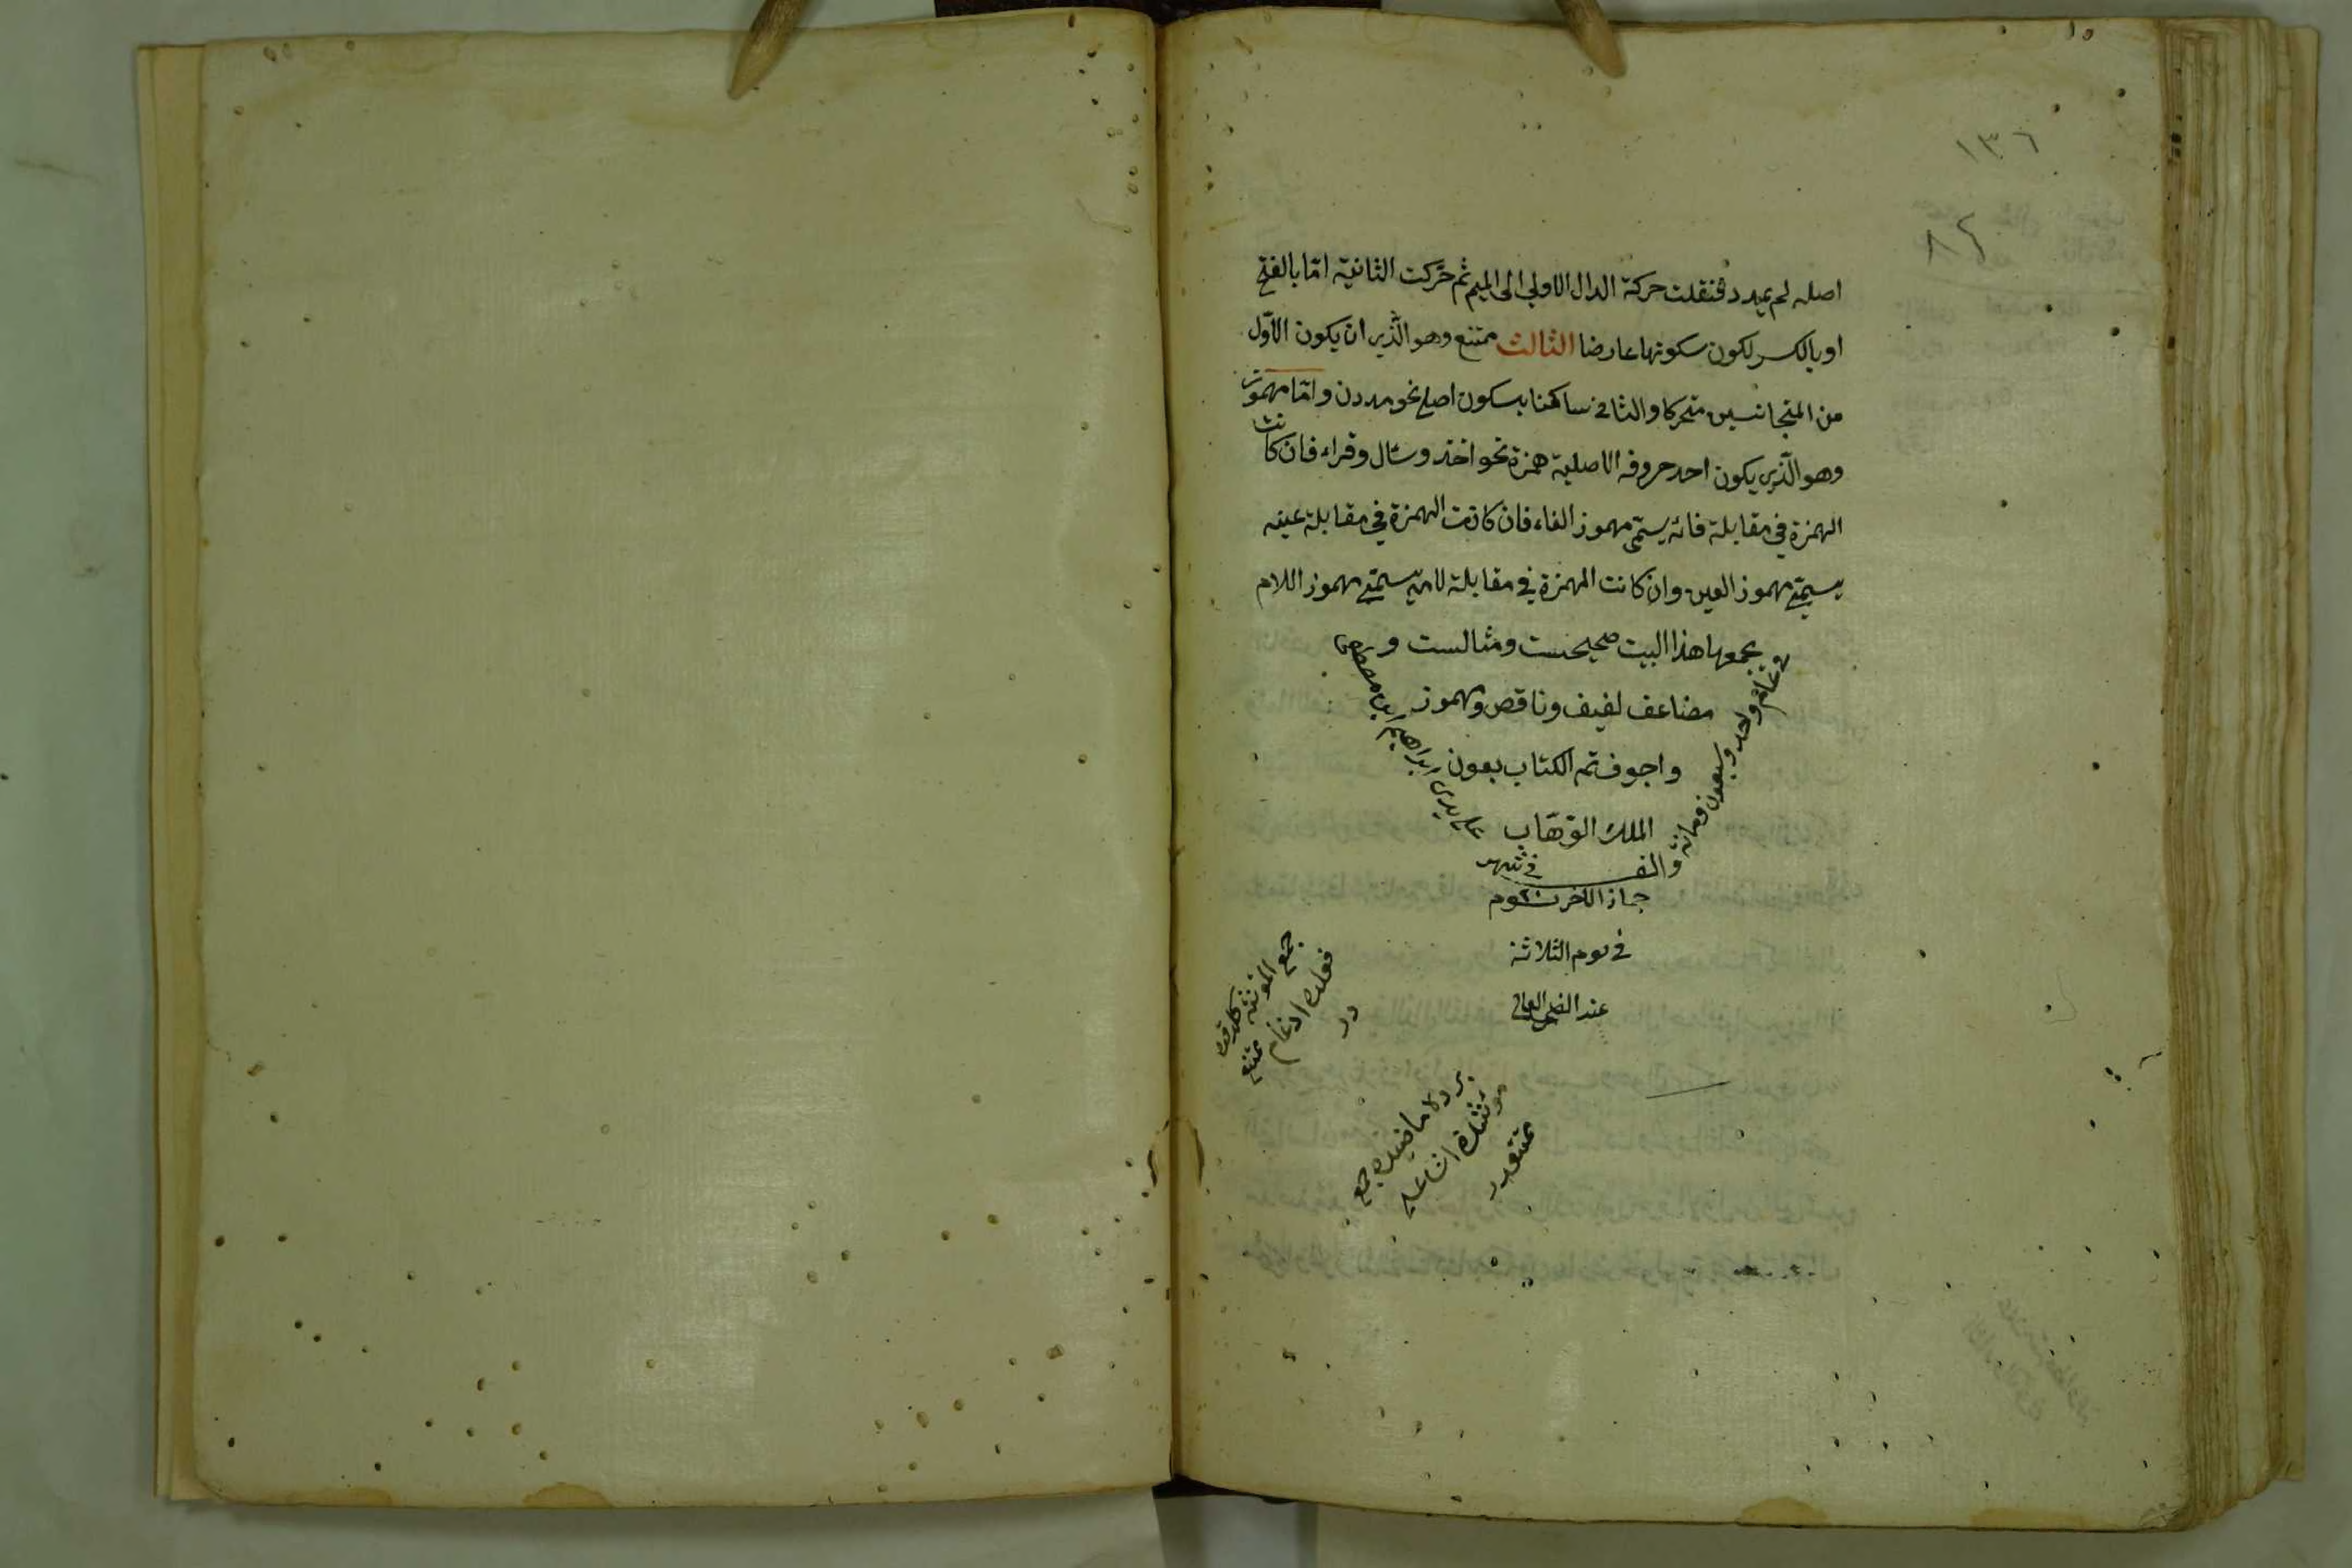 ١٣٦
٨٤
اصله لم يمدد فنقلت حركة الدال الاولى الى الميم ثم حركت الثانية امّا بالفتح
او بالكسر لكون سكونها عارضا الثالث ممتنع وهو الّذى ان يكون الاوّل
من المتجانسين متحركا والثانى ساكنا بسكون اصلى نحو مددن وامّا مهموز
وهو الّذى يكون احد حروفه الاصلية همزة نحو اخذ وسئال وقراء فان كانت
الهمزة فى مقابلة فائه يسمّى مهموز الفاء فان كانت الهمزة فى مقابلة عينه
يسمّى مهموز العين وان كانت الهمزة فى مقابلة لامه يسمّى مهموز اللام
يجمعها هذا البيت صحيحست ومثالست و
مضاعف لفيف وناقص ومهموز
واجوف تم الكتاب بعون
الملك الوهّاب
على يدى ابراهيم بن مصطفى
واحد وسبعون ومائة
والف فى شهر
جماذ الاخر
فى يوم الثلاثة
عند الضحى
جمع المؤنثه
ادغام ممتنع
در